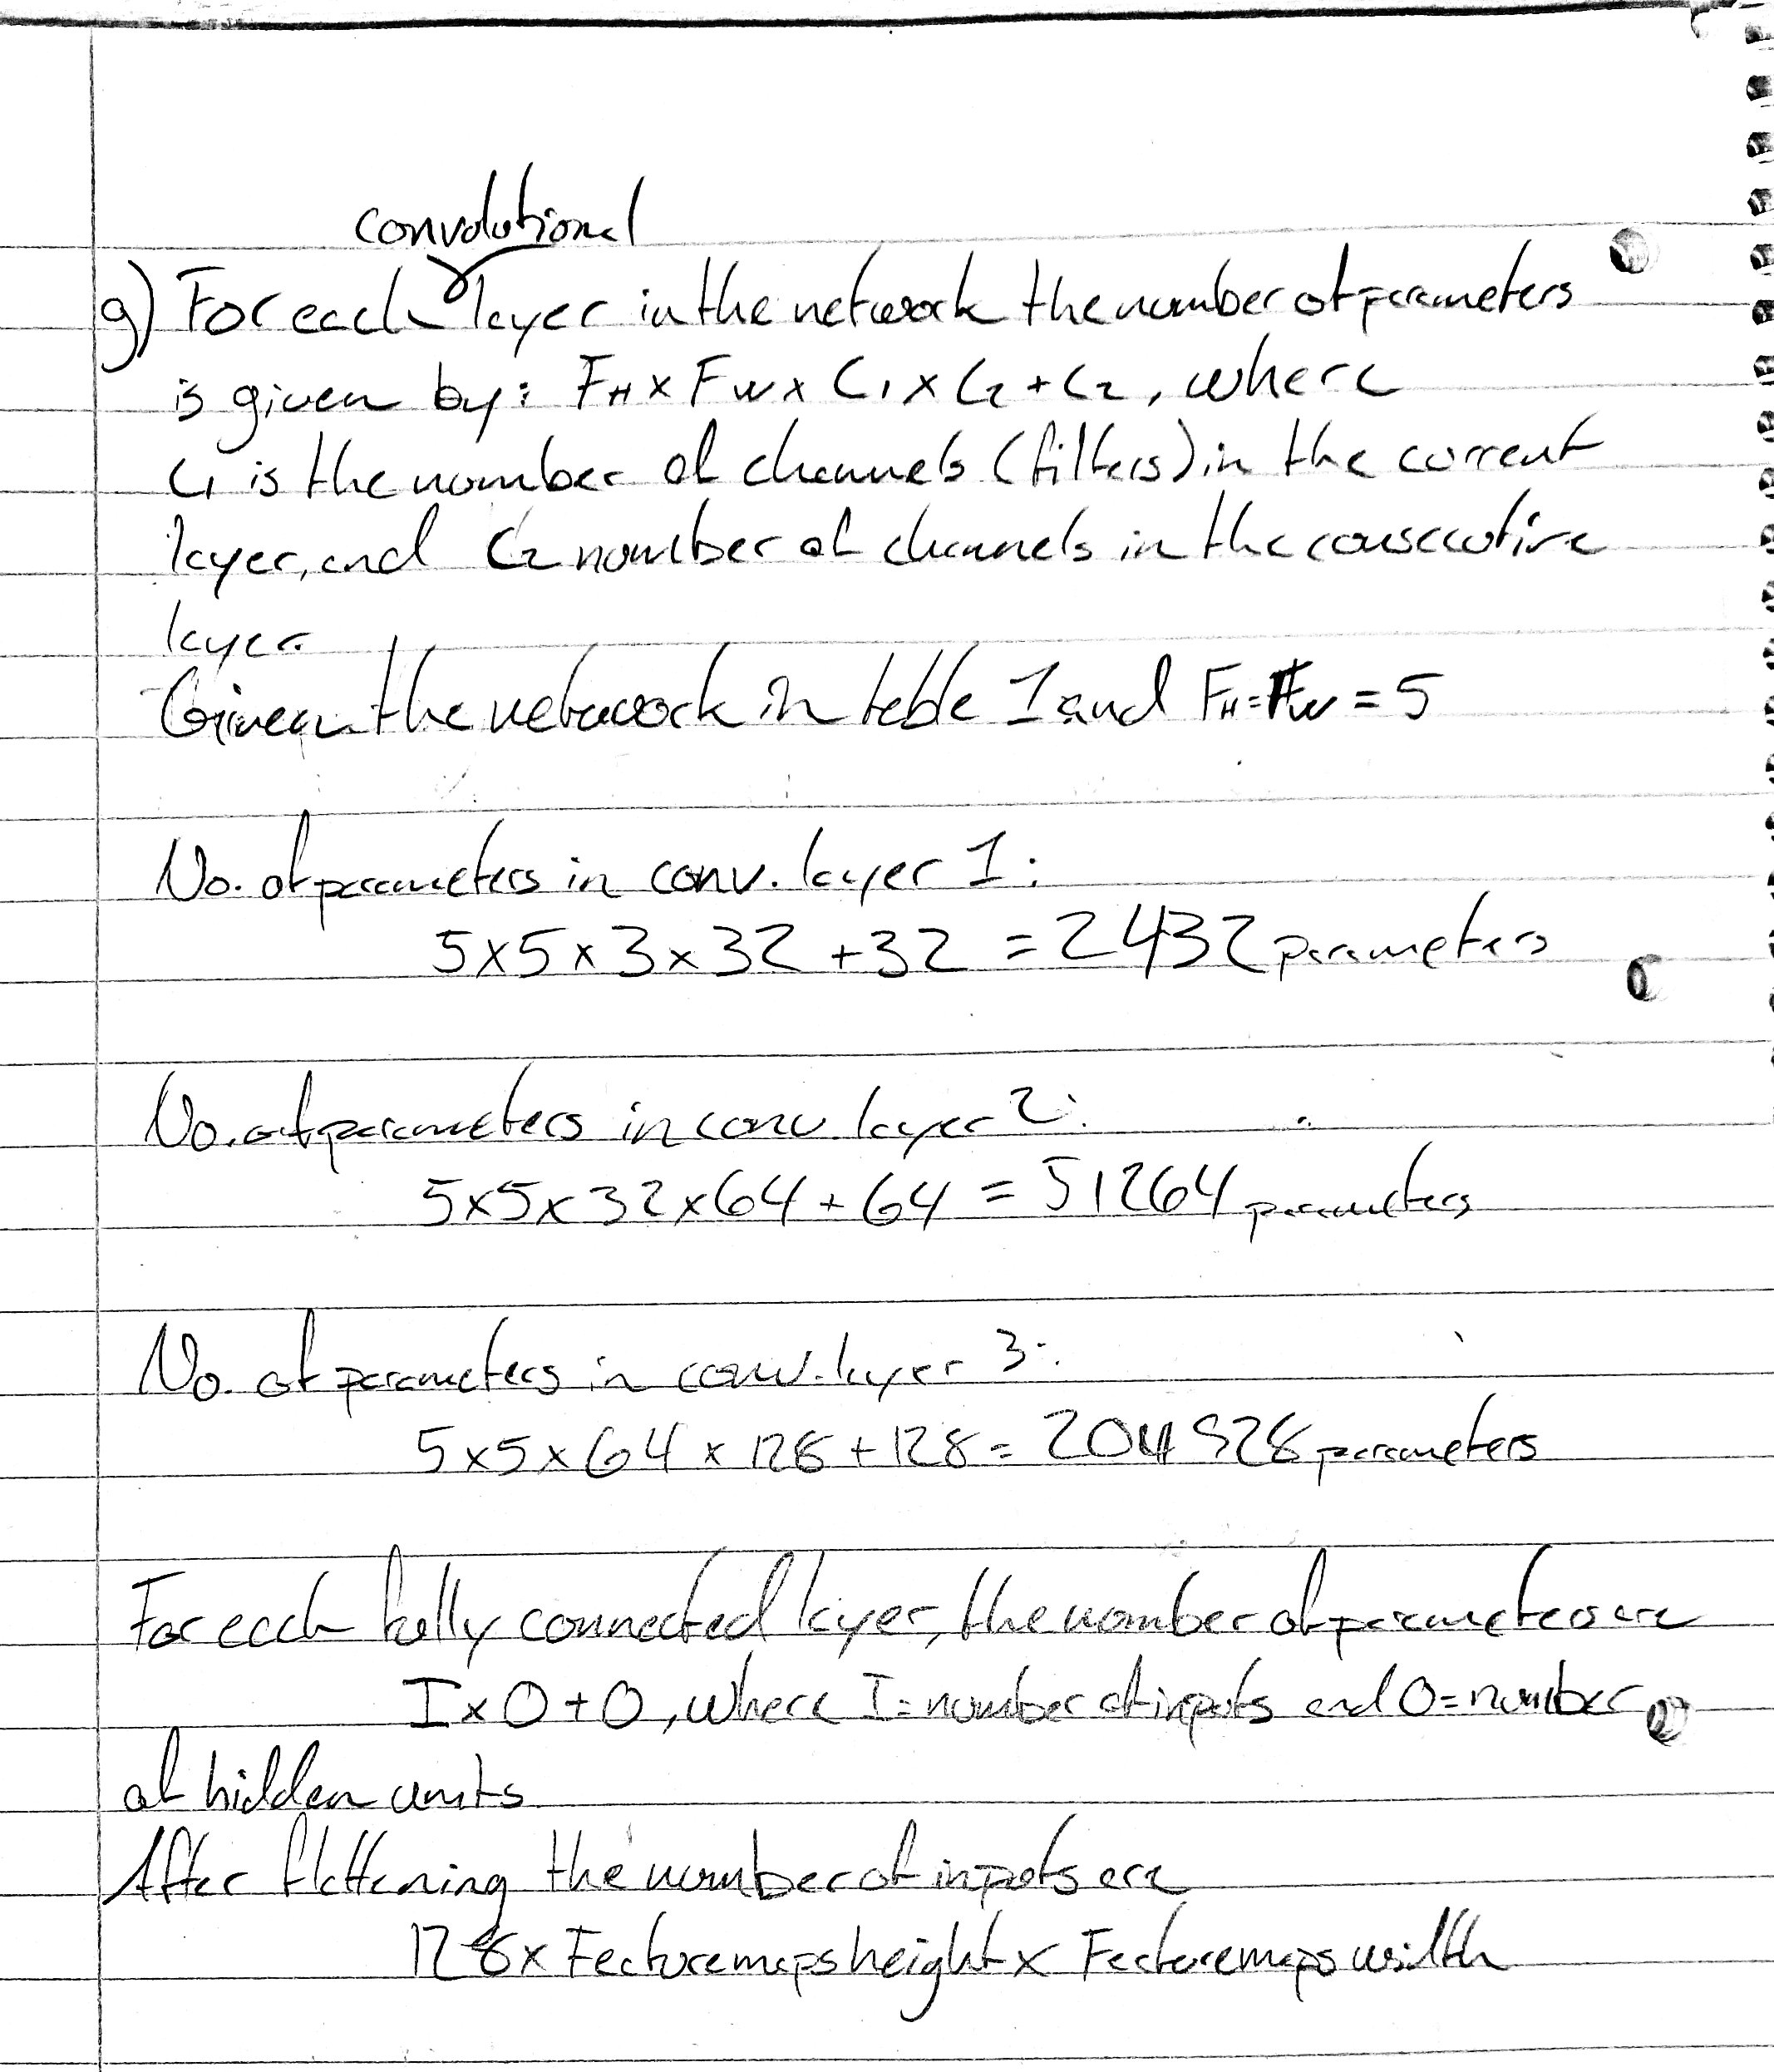 convolutional
g) For each layer in the network the number of parameters
is given by: FH x FW x C1 x C2 + C2, where
C1 is the number of channels (filters) in the current
layer, and C2 number of channels in the consecutive
layer.
Given the network in table 1 and FH = FW = 5
No. of parameters in conv. layer 1:
5x5x3x32 + 32 = 2432 parameters
No. of parameters in conv layer 2:
5x5x32x64 + 64 = 51264 parameters
No. of parameters in conv. layer 3:
5x5x64x128 + 128 = 204928 parameters
For each fully connected layer, the number of parameters are
I x O + O, where I = number of inputs and O = number
of hidden units
After flattening the number of inputs are
128 x Feature maps height x Feature maps width